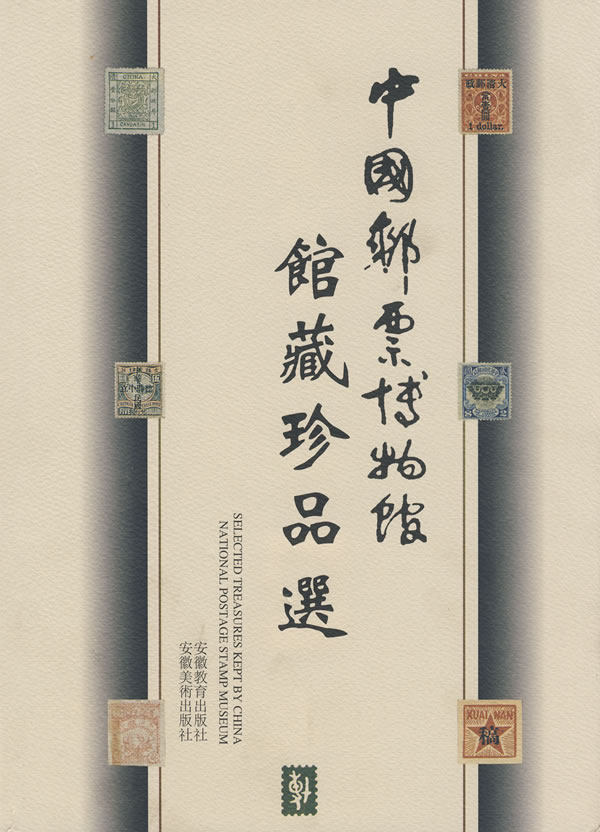 中國郵票博物館
館藏珍品選
SELECTED TREASURES KEPT BY CHINA
NATIONAL POSTAGE STAMP MUSEUM
安徽教育出版社
安徽美術出版社
CHINA
大清郵政
1 dollar.
KUAI NAN
稿